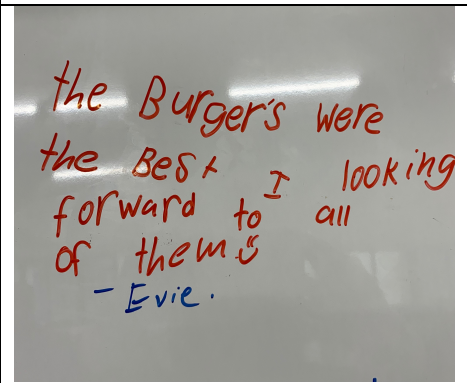 the Burger's were
the Best I looking
forward to all
of them☺
- Evie.